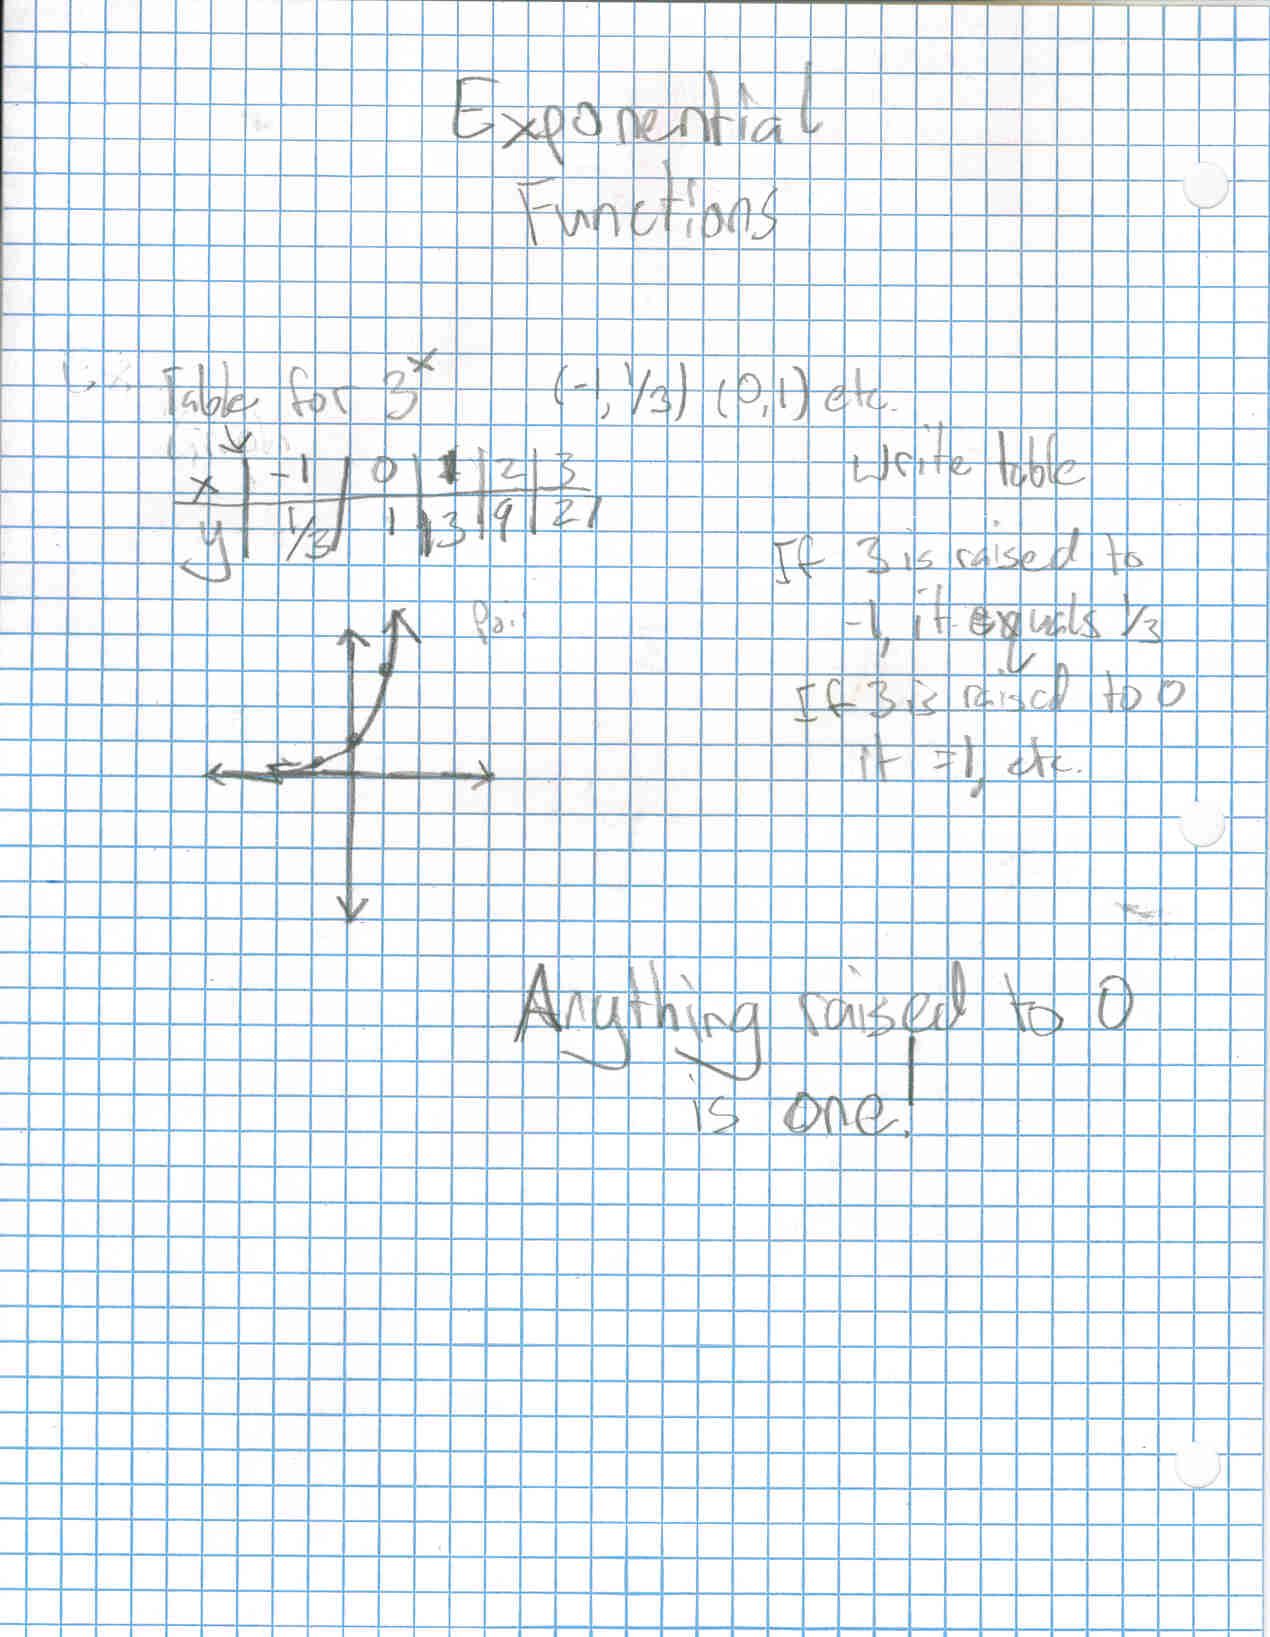 Exponential
Functions
Table for 3^x (-1, 1/3) (0,1) etc.
x | -1 | 0 | 1 | 2 | 3
y | 1/3 | 1 | 3 | 9 | 27
write table
If 3 is raised to
-1, it equals 1/3
If 3 is raised to 0
it =1, etc.
Anything raised to 0
is one!